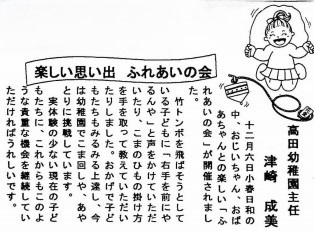 楽しい思い出　ふれあいの会
高田幼稚園主任
津崎　成美
十二月六日小春日和の
中、おじいちゃん、おば
あちゃんとの楽しい「ふ
れあいの会」が開催されまし
た。
竹トンボを飛ばそうとして
いる子どもに「右手を前にや
るんや」と声をかけていただ
いたり、こまのひもの掛け方
を手を取って教えていただい
たりしました。おかげで子ど
もたちもみるみる上達し、今
は幼稚園でこま回しや、あや
とりに挑戦しています。
実体験の少ない現在の子ど
もたちに、これからもこのよ
うな貴重な機会を継続してい
ただければうれしいです。